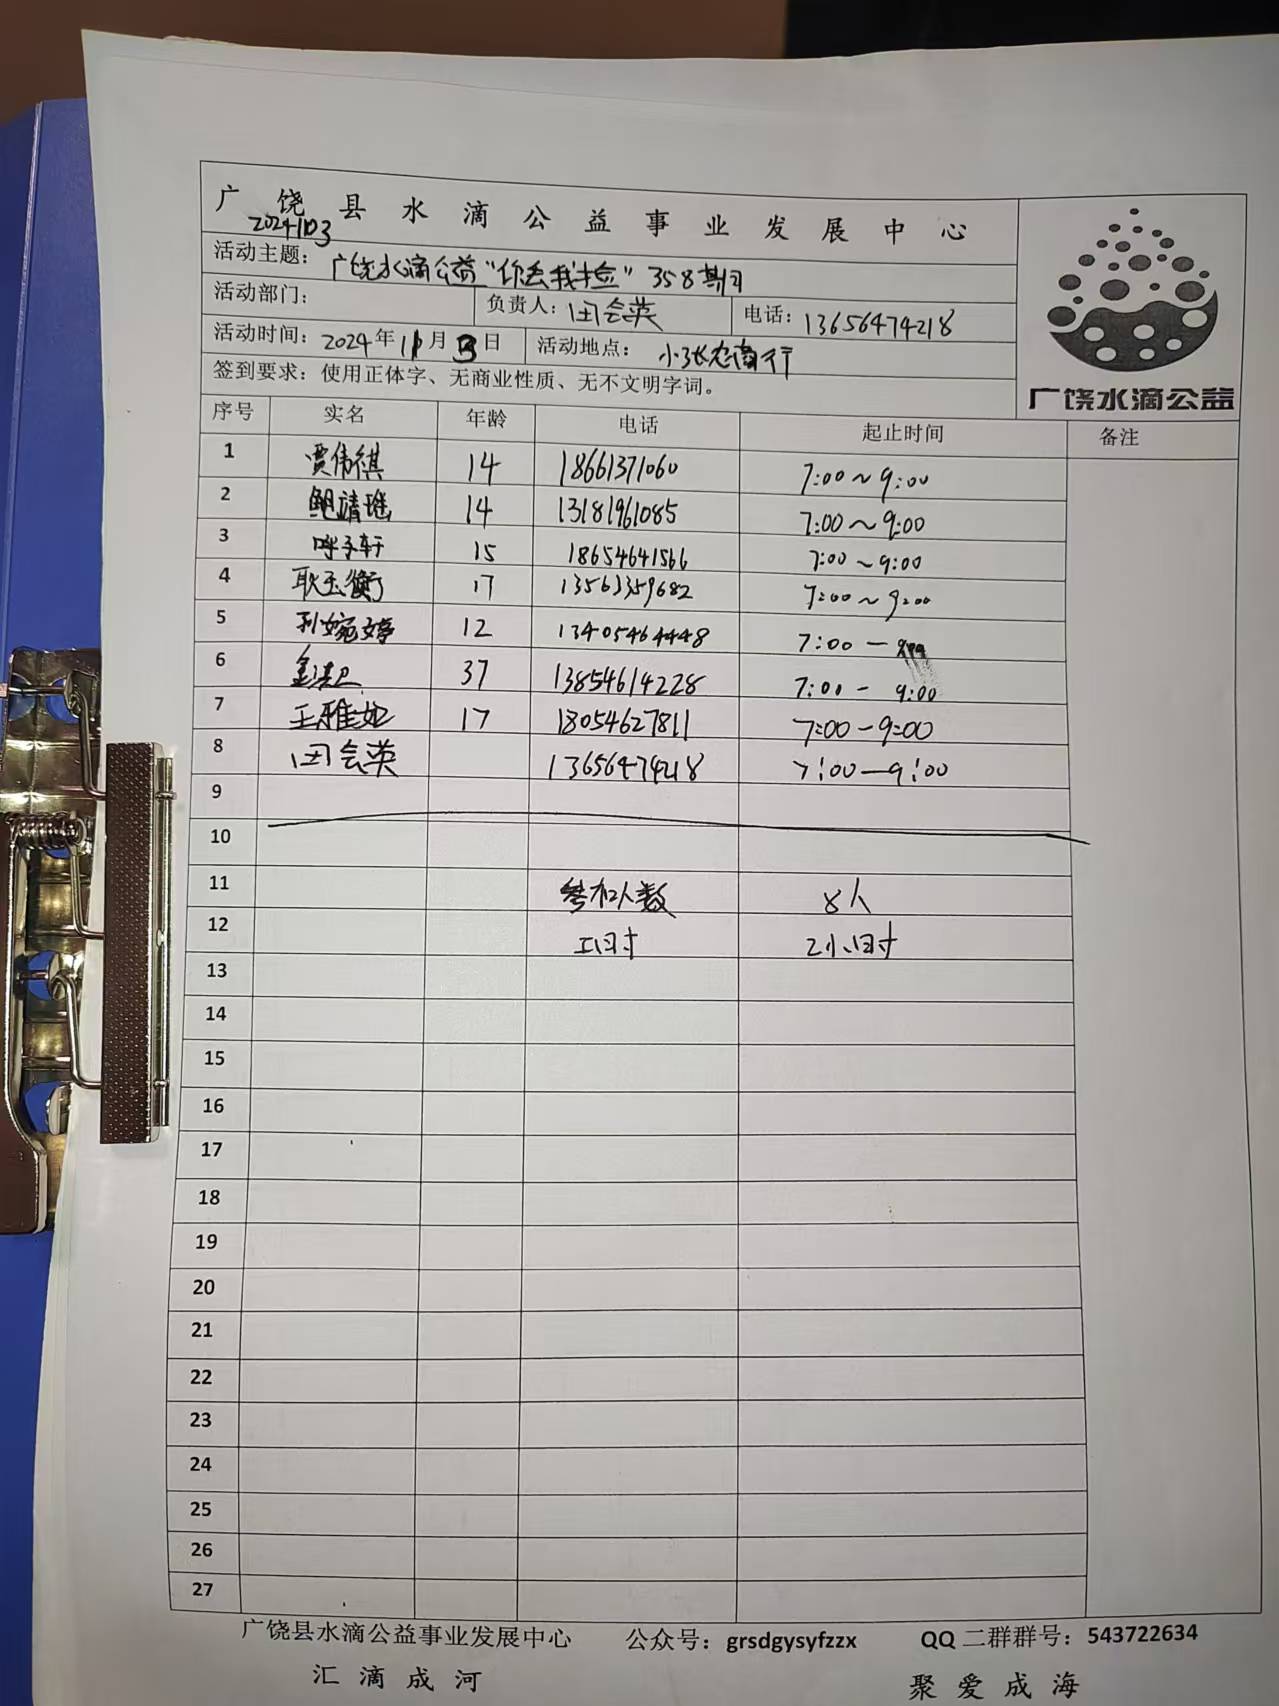 广饶县水滴公益事业发展中心
20241103
活动主题：广饶水滴公益“你丢我捡”358期
活动部门： 负责人：田会英 电话：13656474218
活动时间：2024年11月3日 活动地点：小张农商行
签到要求：使用正体字、无商业性质、无不文明字词。
广饶水滴公益
序号 实名 年龄 电话 起止时间 备注
1 贾伟祺 14 18661371060 7:00~9:00
2 鲍靖瑶 14 13181961085 7:00~9:00
3 15 18654641566 7:00~9:00
4 耿玉衡 17 13563359682 7:00~9:00
5 孙婉婷 12 13405464448 7:00-
6 37 13854614228 7:00-9:00
7 王雅妮 17 18054627811 7:00-9:00
8 田会英 13656474218 7:00-9:00
9
10
11 参加人数 8人
12 工时 2小时
13
14
15
16
17
18
19
20
21
22
23
24
25
26
27
广饶县水滴公益事业发展中心 公众号：grsdgysyfzzx QQ二群群号：543722634
汇滴成河 聚爱成海